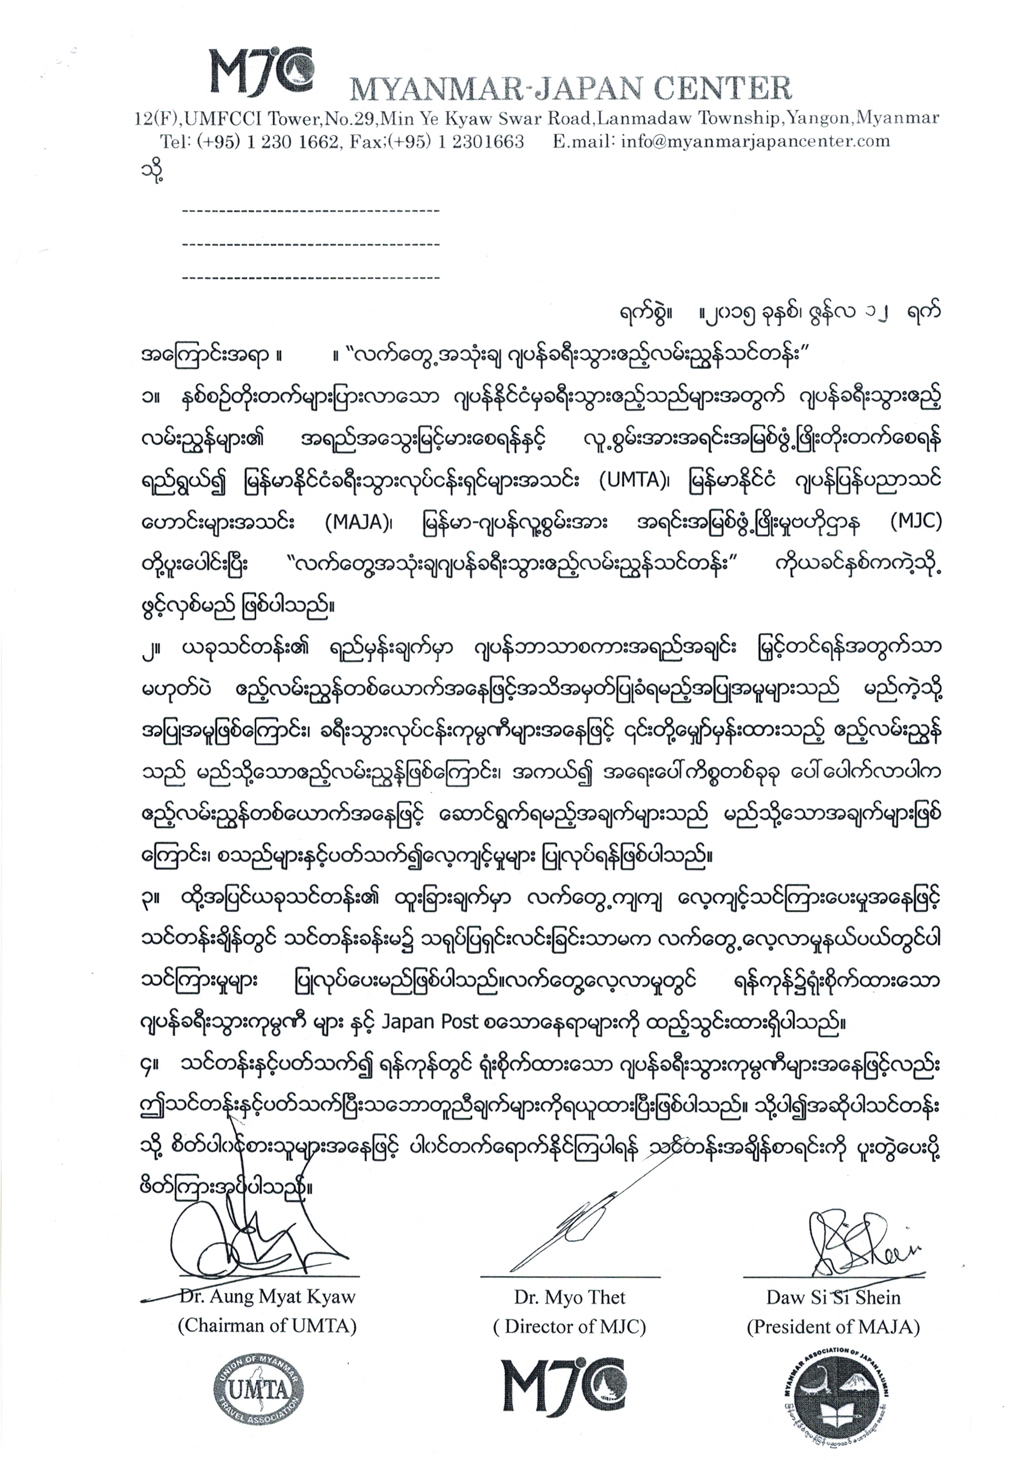 MJC MYANMAR-JAPAN CENTER
12(F),UMFCCI Tower,No.29,Min Ye Kyaw Swar Road,Lanmadaw Township,Yangon,Myanmar
Tel: (+95) 1 230 1662, Fax;(+95) 1 2301663 E.mail: info@myanmarjapancenter.com
သို့
-----------------------------------
-----------------------------------
-----------------------------------
ရက်စွဲ။ ။၂၀၁၅ ခုနှစ်၊ ဇွန်လ ၁၂ ရက်
အကြောင်းအရာ ။ ။ “လက်တွေ့အသုံးချ ဂျပန်ခရီးသွားဧည့်လမ်းညွှန်သင်တန်း”
၁။ နှစ်စဉ်တိုးတက်များပြားလာသော ဂျပန်နိုင်ငံမှခရီးသွားဧည့်သည်များအတွက် ဂျပန်ခရီးသွားဧည့်
လမ်းညွှန်များ၏ အရည်အသွေးမြင့်မားစေရန်နှင့် လူ့စွမ်းအားအရင်းအမြစ်ဖွံ့ဖြိုးတိုးတက်စေရန်
ရည်ရွယ်၍ မြန်မာနိုင်ငံခရီးသွားလုပ်ငန်းရှင်များအသင်း (UMTA)၊ မြန်မာနိုင်ငံ ဂျပန်ပြန်ပညာသင်
ဟောင်းများအသင်း (MAJA)၊ မြန်မာ-ဂျပန်လူ့စွမ်းအား အရင်းအမြစ်ဖွံ့ဖြိုးမှုဗဟိုဌာန (MJC)
တို့ပူးပေါင်းပြီး “လက်တွေ့အသုံးချဂျပန်ခရီးသွားဧည့်လမ်းညွှန်သင်တန်း” ကိုယခင်နှစ်ကကဲ့သို့
ဖွင့်လှစ်မည် ဖြစ်ပါသည်။
၂။ ယခုသင်တန်း၏ ရည်မှန်းချက်မှာ ဂျပန်ဘာသာစကားအရည်အချင်း မြှင့်တင်ရန်အတွက်သာ
မဟုတ်ပဲ ဧည့်လမ်းညွှန်တစ်ယောက်အနေဖြင့်အသိအမှတ်ပြုခံရမည့်အပြုအမူများသည် မည်ကဲ့သို့
အပြုအမူဖြစ်ကြောင်း၊ ခရီးသွားလုပ်ငန်းကုမ္ပဏီများအနေဖြင့် ၎င်းတို့မျှော်မှန်းထားသည့် ဧည့်လမ်းညွှန်
သည် မည်သို့သောဧည့်လမ်းညွှန်ဖြစ်ကြောင်း၊ အကယ်၍ အရေးပေါ်ကိစ္စတစ်ခုခု ပေါ်ပေါက်လာပါက
ဧည့်လမ်းညွှန်တစ်ယောက်အနေဖြင့် ဆောင်ရွက်ရမည့်အချက်များသည် မည်သို့သောအချက်များဖြစ်
ကြောင်း၊ စသည်များနှင့်ပတ်သက်၍လေ့ကျင့်မှုများ ပြုလုပ်ရန်ဖြစ်ပါသည်။
၃။ ထို့အပြင်ယခုသင်တန်း၏ ထူးခြားချက်မှာ လက်တွေ့ကျကျ လေ့ကျင့်သင်ကြားပေးမှုအနေဖြင့်
သင်တန်းချိန်တွင် သင်တန်းခန်းမ၌ သရုပ်ပြရှင်းလင်းခြင်းသာမက လက်တွေ့လေ့လာမှုနယ်ပယ်တွင်ပါ
သင်ကြားမှုများ ပြုလုပ်ပေးမည်ဖြစ်ပါသည်။လက်တွေ့လေ့လာမှုတွင် ရန်ကုန်၌ရုံးစိုက်ထားသော
ဂျပန်ခရီးသွားကုမ္ပဏီ များ နှင့် Japan Post စသောနေရာများကို ထည့်သွင်းထားရှိပါသည်။
၄။ သင်တန်းနှင့်ပတ်သက်၍ ရန်ကုန်တွင် ရုံးစိုက်ထားသော ဂျပန်ခရီးသွားကုမ္ပဏီများအနေဖြင့်လည်း
ဤသင်တန်းနှင့်ပတ်သက်ပြီးသဘောတူညီချက်များကိုရယူထားပြီးဖြစ်ပါသည်။ သို့ပါ၍အဆိုပါသင်တန်း
သို့ စိတ်ပါဝင်စားသူများအနေဖြင့် ပါဝင်တက်ရောက်နိုင်ကြပါရန် သင်တန်းအချိန်စာရင်းကို ပူးတွဲပေးပို့
ဖိတ်ကြားအပ်ပါသည်။
Si Shein
Dr. Aung Myat Kyaw Dr. Myo Thet Daw Si Si Shein
(Chairman of UMTA) ( Director of MJC) (President of MAJA)
UNION OF MYANMAR UMTA TRAVEL ASSOCIATION MJC MYANMAR ASSOCIATION OF JAPAN ALUMNI